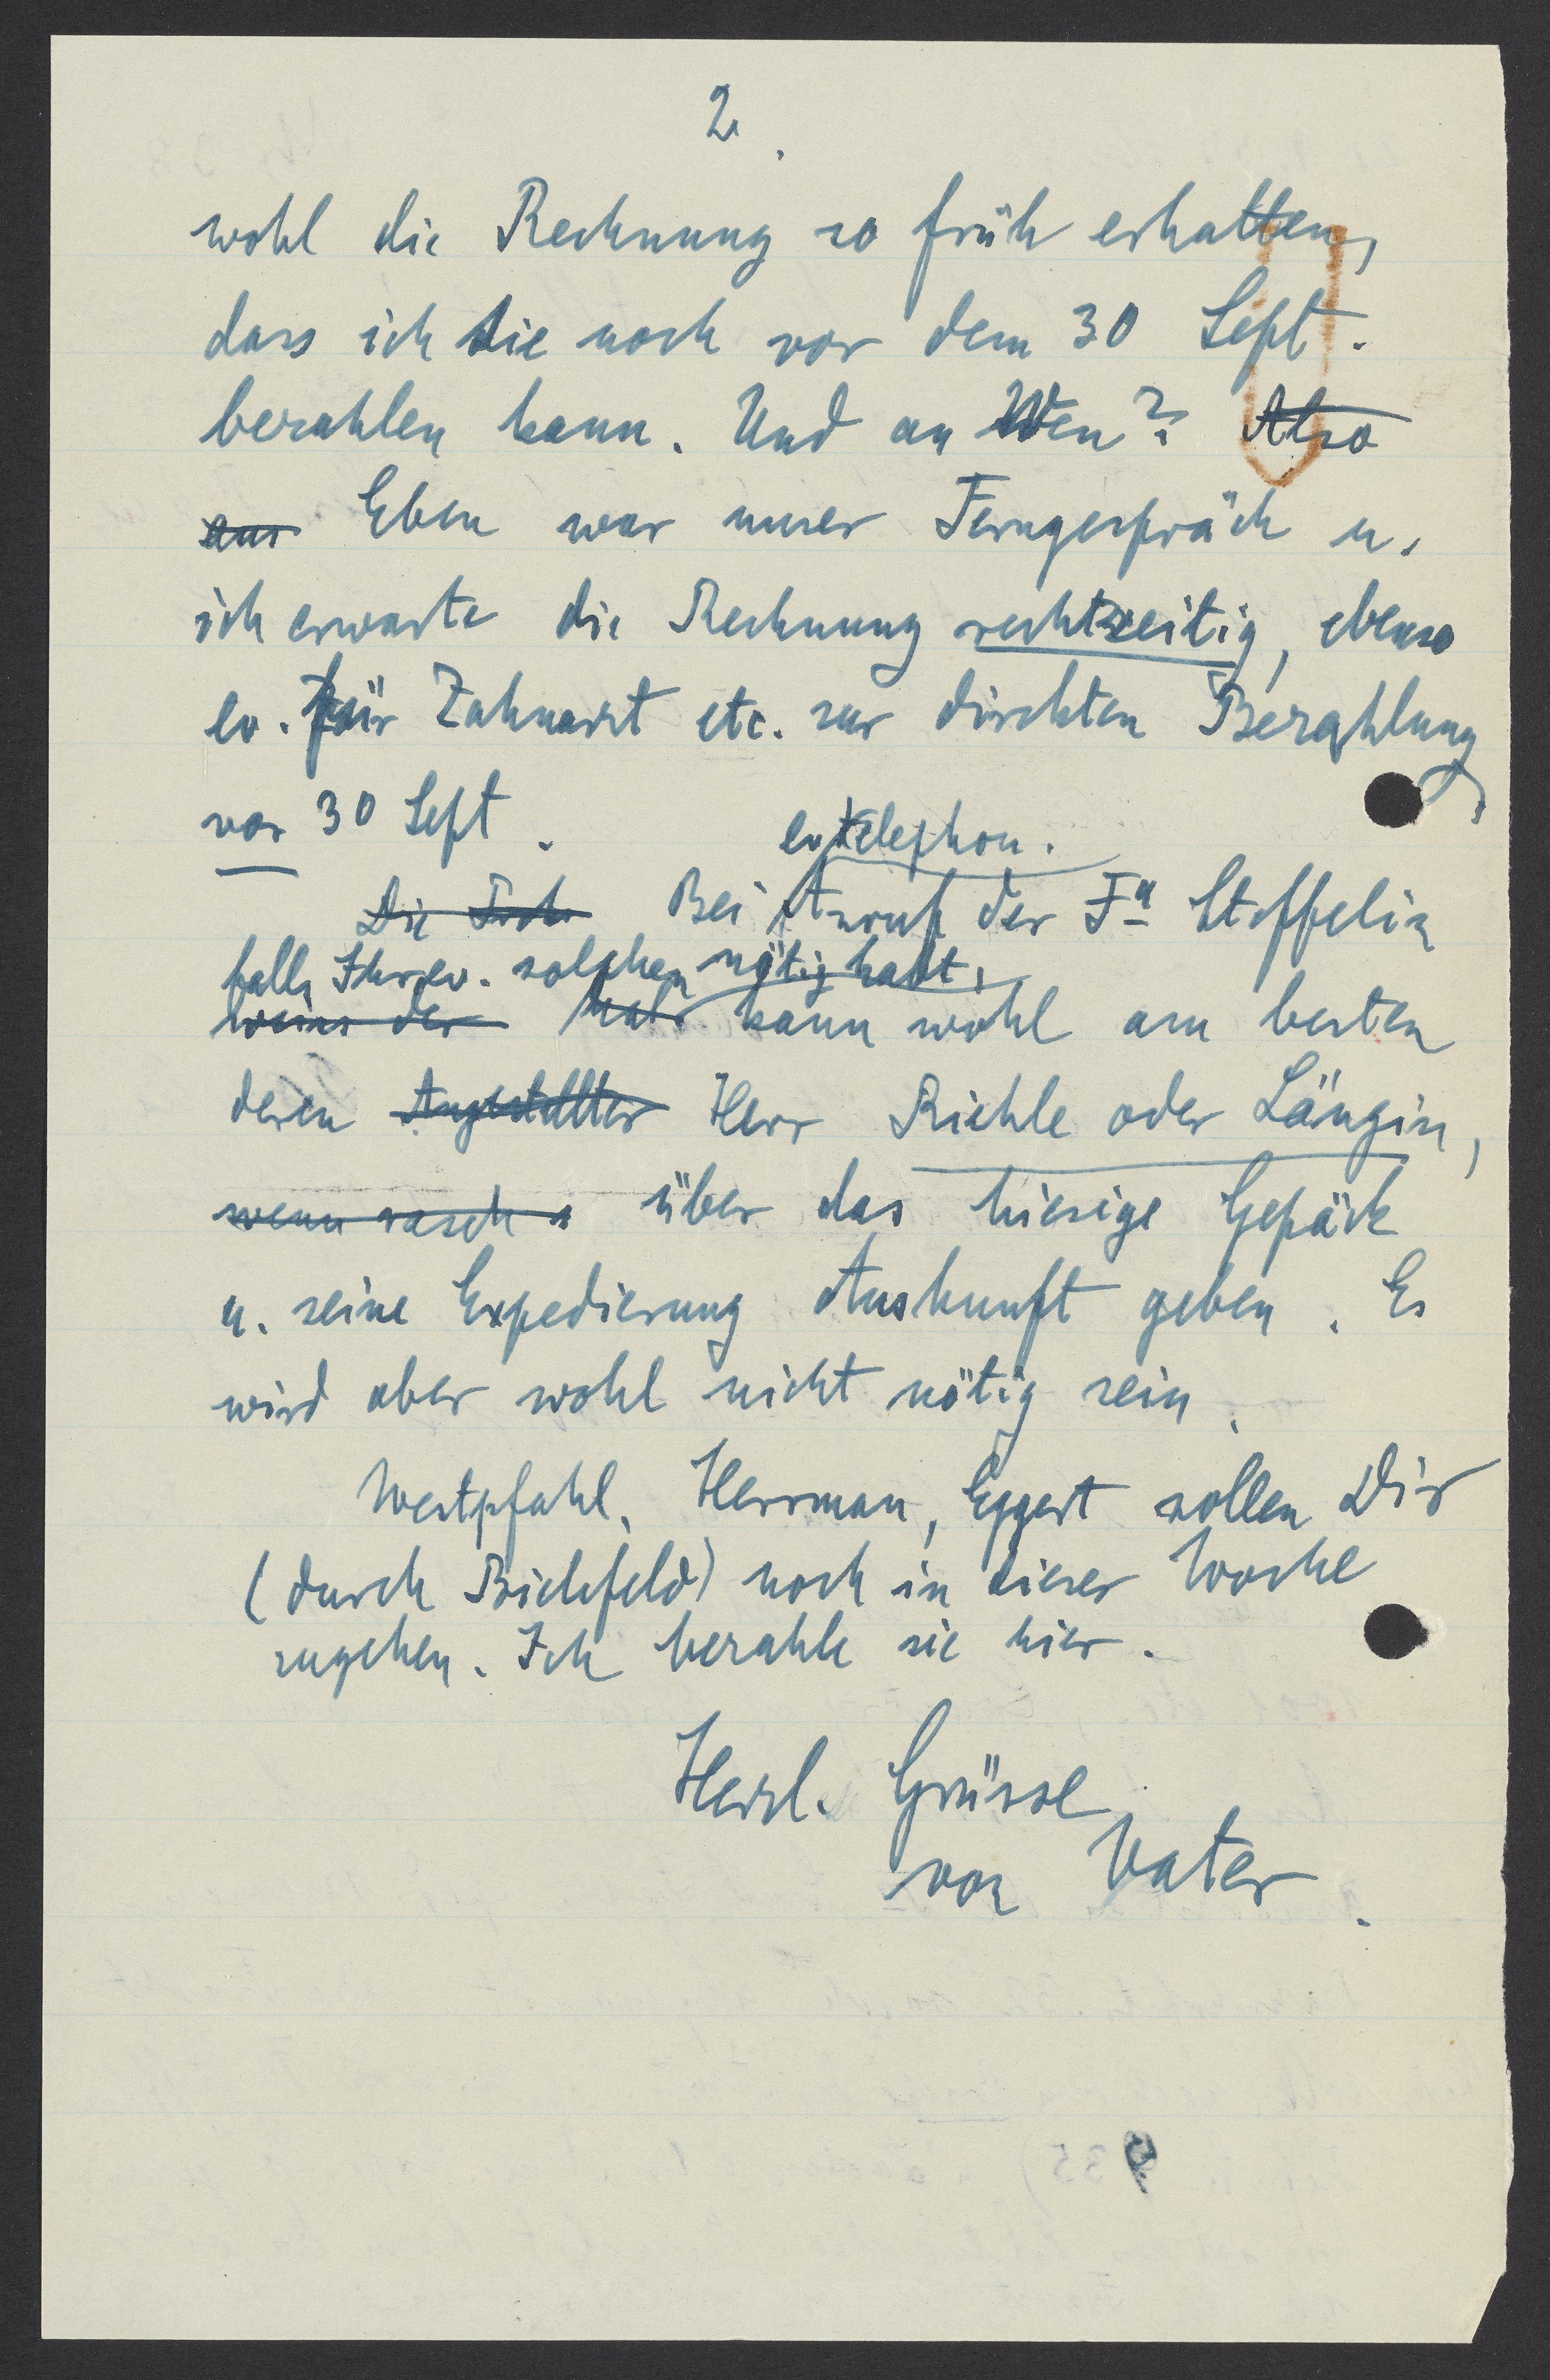 2.
wohl die Rechnung so früh erhalten,
dass ich sie noch vor dem 30 Sept.
bezahlen kann. Und an Wen? Also
aus Eben war unser Ferngespräch u.
ich erwarte die Rechnung rechtzeitig, ebenso
ev. für Zahnarzt etc. zur direkten Bezahlung
vor 30 Sept.
ev. telephon.
Die Bei Anruf der Fa Stoffelin
falls Ihr ev. solchen nötig habt,
wenn der kann wohl am besten
deren Angestellter Herr Riehle oder Längin,
wenn rasch über das hiesige Gepäck
u. seine Expedierung Auskunft geben. Es
wird aber wohl nicht nötig sein.
Westpfahl, Herrman, Eggert sollen Dir
(durch Bielefeld) noch in dieser Woche
zugehen. Ich bezahle sie hier.
Herzl. Grüsse
von Vater.